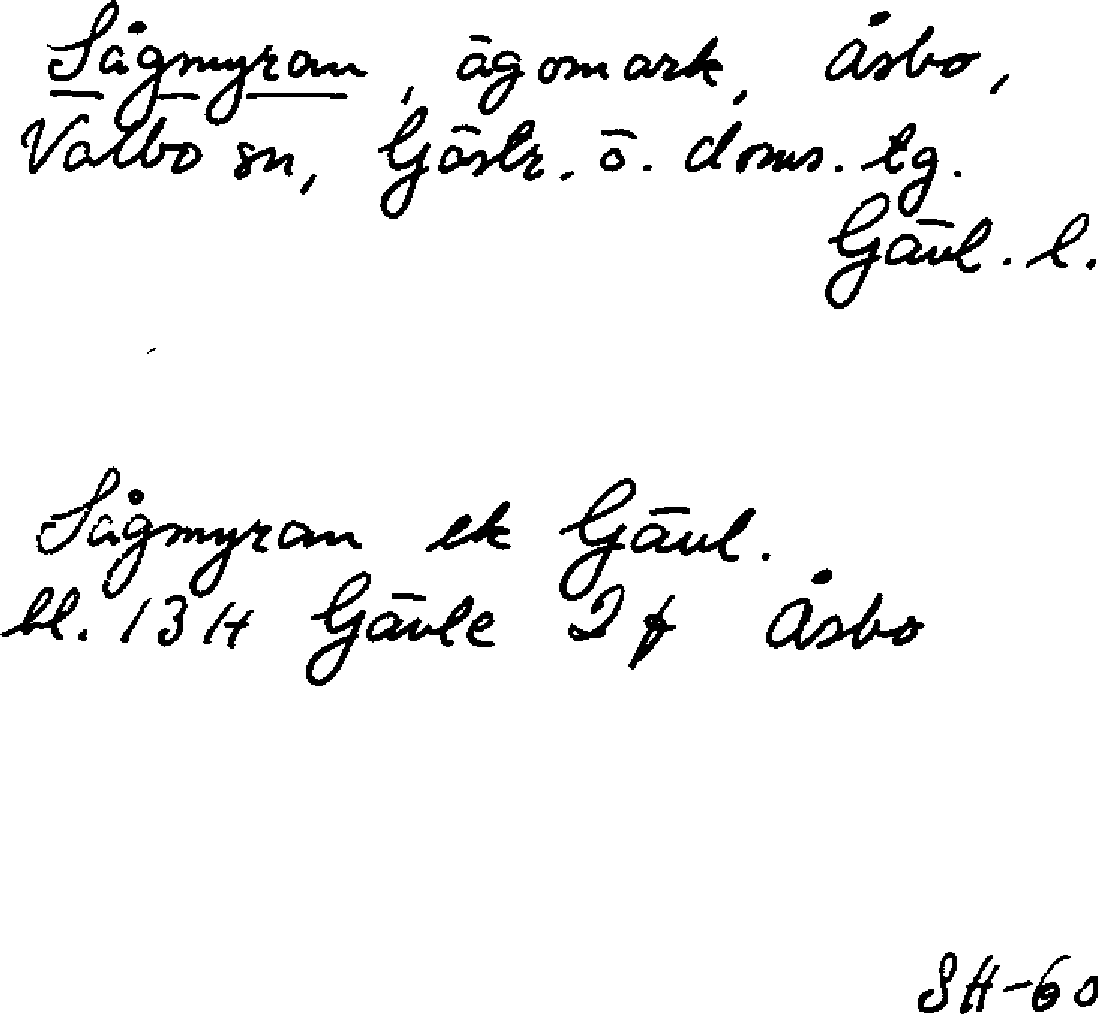 Sågmyran, ägomark, Åsbo,
Valbo sn, Gästr. ö. doms. tg.
Gävl. l.
Sågmyran ek Gävl.
bl. 13 H Gävle 2 f Åsbo
SH-60